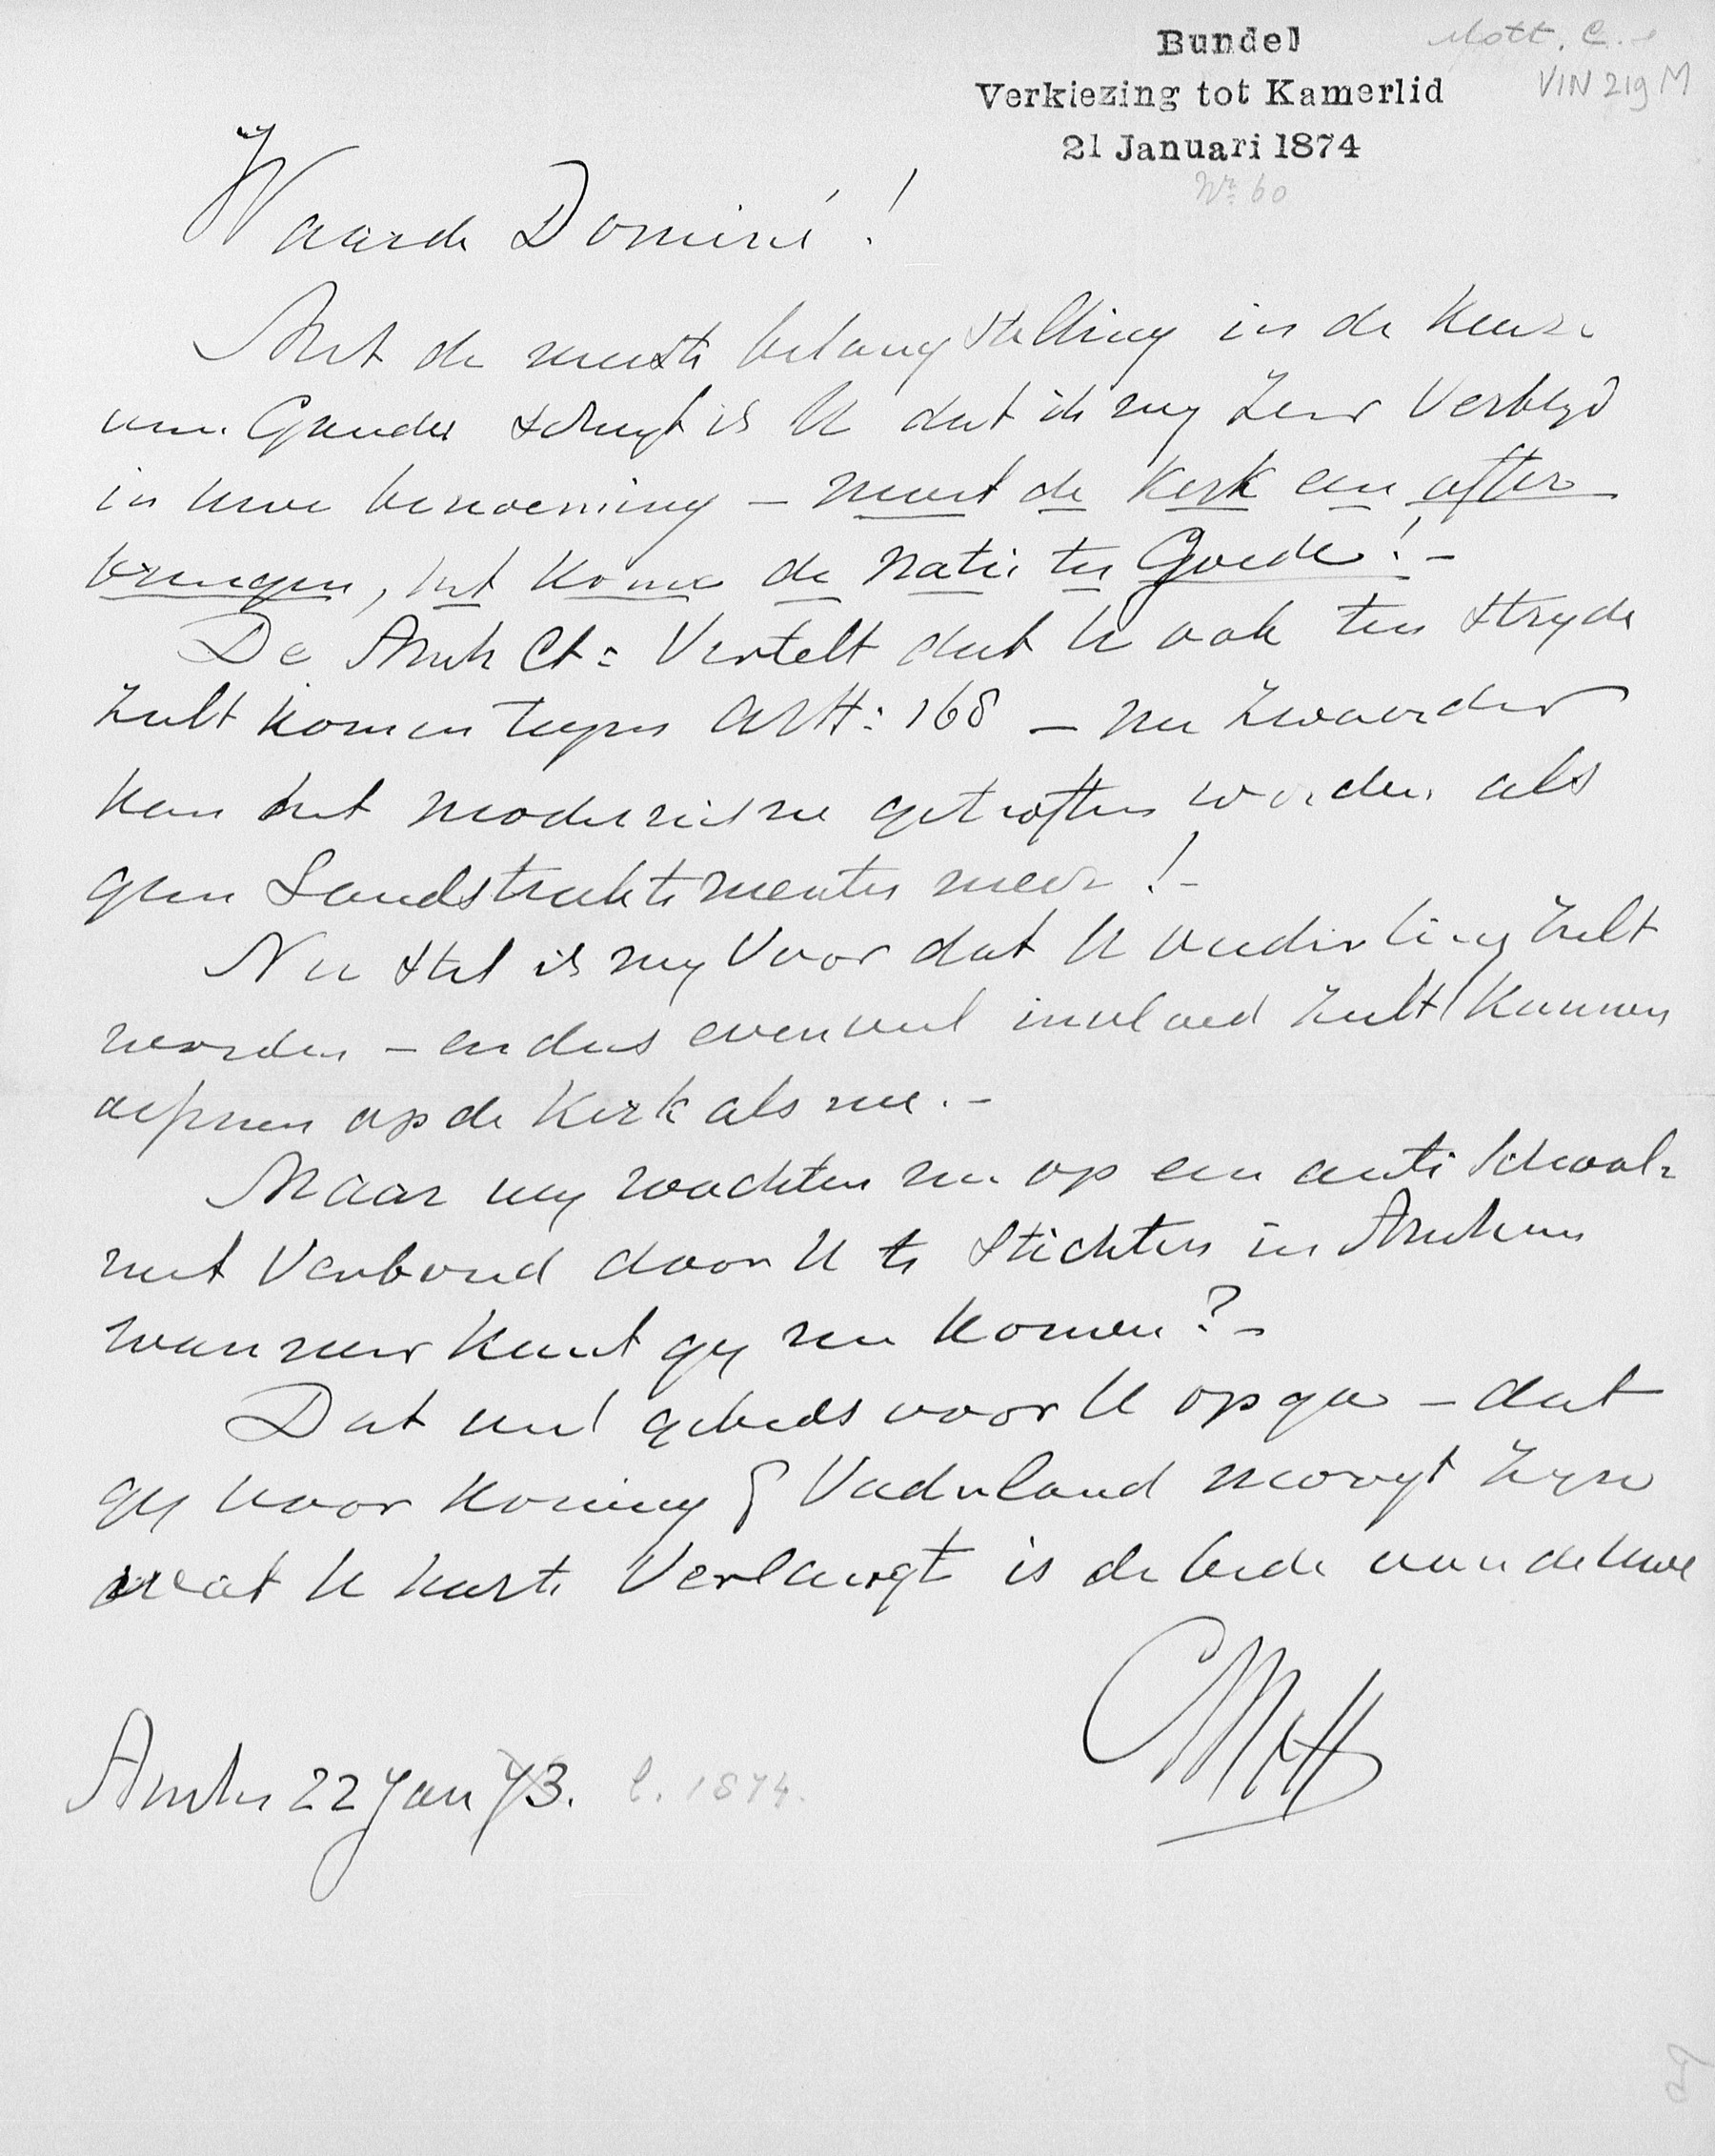 Bundel
Verkiezing tot Kamerlid
21 Januari 1874
Nr. 60
Mott. C.
VIN 219 M
Waarde Dominé!
Met de meeste belangstelling in de keuze
van Gouda schryf ik U dat ik my zeer verblyd
in uwe benoeming – moest de Kerk een offer
brengen, het kome de natie ten Goede! –
De Arnh Ct: vertelt dat U ook ten stryde
zult komen tegen Artt: 168 – nu zwaarder
kan het modernisme getroffen worden als
geen Landstraktementen meer! –
Nu stel ik my voor dat U ouderling zult
worden – en dus evenveel invloed zult kunnen
oefenen op de Kerk als nu. –
Maar wy wachten nu op een anti School-
wet Verbond door U te stichten in Arnhem
wanneer kunt gy nu komen? –
Dat veel gebeds voor U opga – dat
gy voor Koning & Vaderland moogt zyn
wat U harte verlangt is de bede van de Uwe
CMott
Arnhm 22 Jan 73. l. 1874.